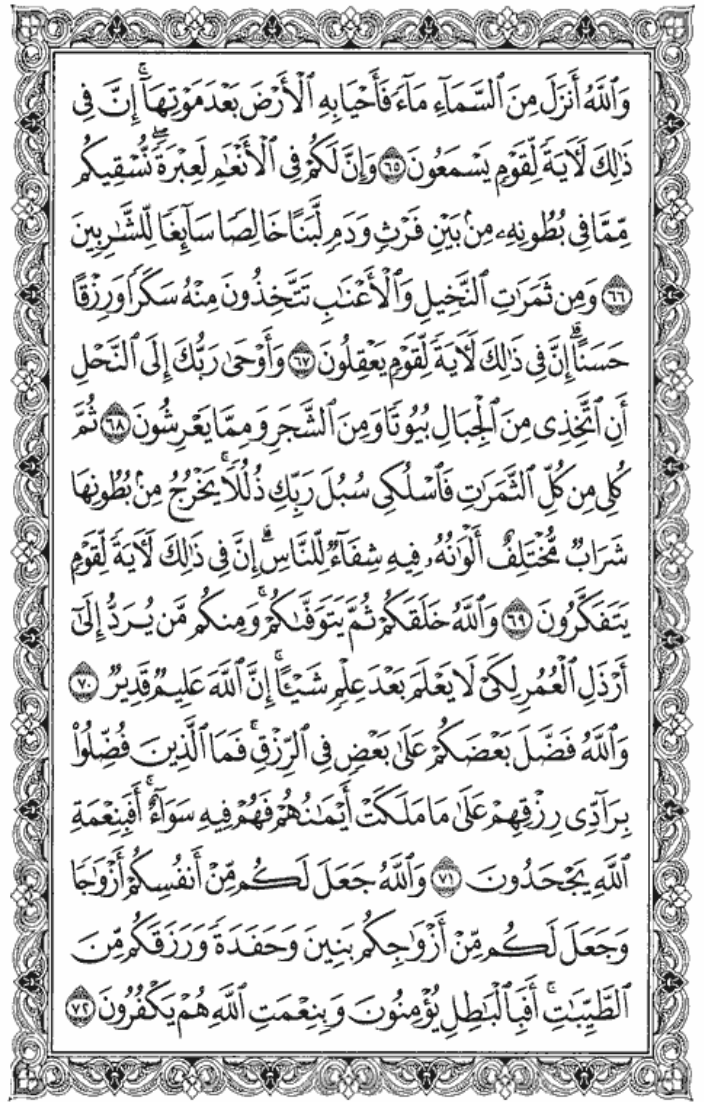 وَٱللَّهُ أَنزَلَ مِنَ ٱلسَّمَآءِ مَآءً فَأَحْيَا بِهِ ٱلْأَرْضَ بَعْدَ مَوْتِهَآ ۚ إِنَّ فِى
ذَٰلِكَ لَءَايَةً لِّقَوْمٍ يَسْمَعُونَ ٦٥ وَإِنَّ لَكُمْ فِى ٱلْأَنْعَٰمِ لَعِبْرَةً ۖ نُّسْقِيكُم
مِّمَّا فِى بُطُونِهِۦ مِنۢ بَيْنِ فَرْثٍ وَدَمٍ لَّبَنًا خَالِصًا سَآئِغًا لِّلشَّٰرِبِينَ
٦٦ وَمِن ثَمَرَٰتِ ٱلنَّخِيلِ وَٱلْأَعْنَٰبِ تَتَّخِذُونَ مِنْهُ سَكَرًا وَرِزْقًا
حَسَنًا ۗ إِنَّ فِى ذَٰلِكَ لَءَايَةً لِّقَوْمٍ يَعْقِلُونَ ٦٧ وَأَوْحَىٰ رَبُّكَ إِلَى ٱلنَّحْلِ
أَنِ ٱتَّخِذِى مِنَ ٱلْجِبَالِ بُيُوتًا وَمِنَ ٱلشَّجَرِ وَمِمَّا يَعْرِشُونَ ٦٨ ثُمَّ
كُلِى مِن كُلِّ ٱلثَّمَرَٰتِ فَٱسْلُكِى سُبُلَ رَبِّكِ ذُلُلًا ۚ يَخْرُجُ مِنۢ بُطُونِهَا
شَرَابٌ مُّخْتَلِفٌ أَلْوَٰنُهُۥ فِيهِ شِفَآءٌ لِّلنَّاسِ ۗ إِنَّ فِى ذَٰلِكَ لَءَايَةً لِّقَوْمٍ
يَتَفَكَّرُونَ ٦٩ وَٱللَّهُ خَلَقَكُمْ ثُمَّ يَتَوَفَّىٰكُمْ ۚ وَمِنكُم مَّن يُرَدُّ إِلَىٰٓ
أَرْذَلِ ٱلْعُمُرِ لِكَىْ لَا يَعْلَمَ بَعْدَ عِلْمٍ شَيْـًٔا ۚ إِنَّ ٱللَّهَ عَلِيمٌ قَدِيرٌ ٧٠
وَٱللَّهُ فَضَّلَ بَعْضَكُمْ عَلَىٰ بَعْضٍ فِى ٱلرِّزْقِ ۚ فَمَا ٱلَّذِينَ فُضِّلُوا۟
بِرَآدِّى رِزْقِهِمْ عَلَىٰ مَا مَلَكَتْ أَيْمَٰنُهُمْ فَهُمْ فِيهِ سَوَآءٌ ۚ أَفَبِنِعْمَةِ
ٱللَّهِ يَجْحَدُونَ ٧١ وَٱللَّهُ جَعَلَ لَكُم مِّنْ أَنفُسِكُمْ أَزْوَٰجًا
وَجَعَلَ لَكُم مِّنْ أَزْوَٰجِكُم بَنِينَ وَحَفَدَةً وَرَزَقَكُم مِّنَ
ٱلطَّيِّبَٰتِ ۚ أَفَبِٱلْبَٰطِلِ يُؤْمِنُونَ وَبِنِعْمَتِ ٱللَّهِ هُمْ يَكْفُرُونَ ٧٢